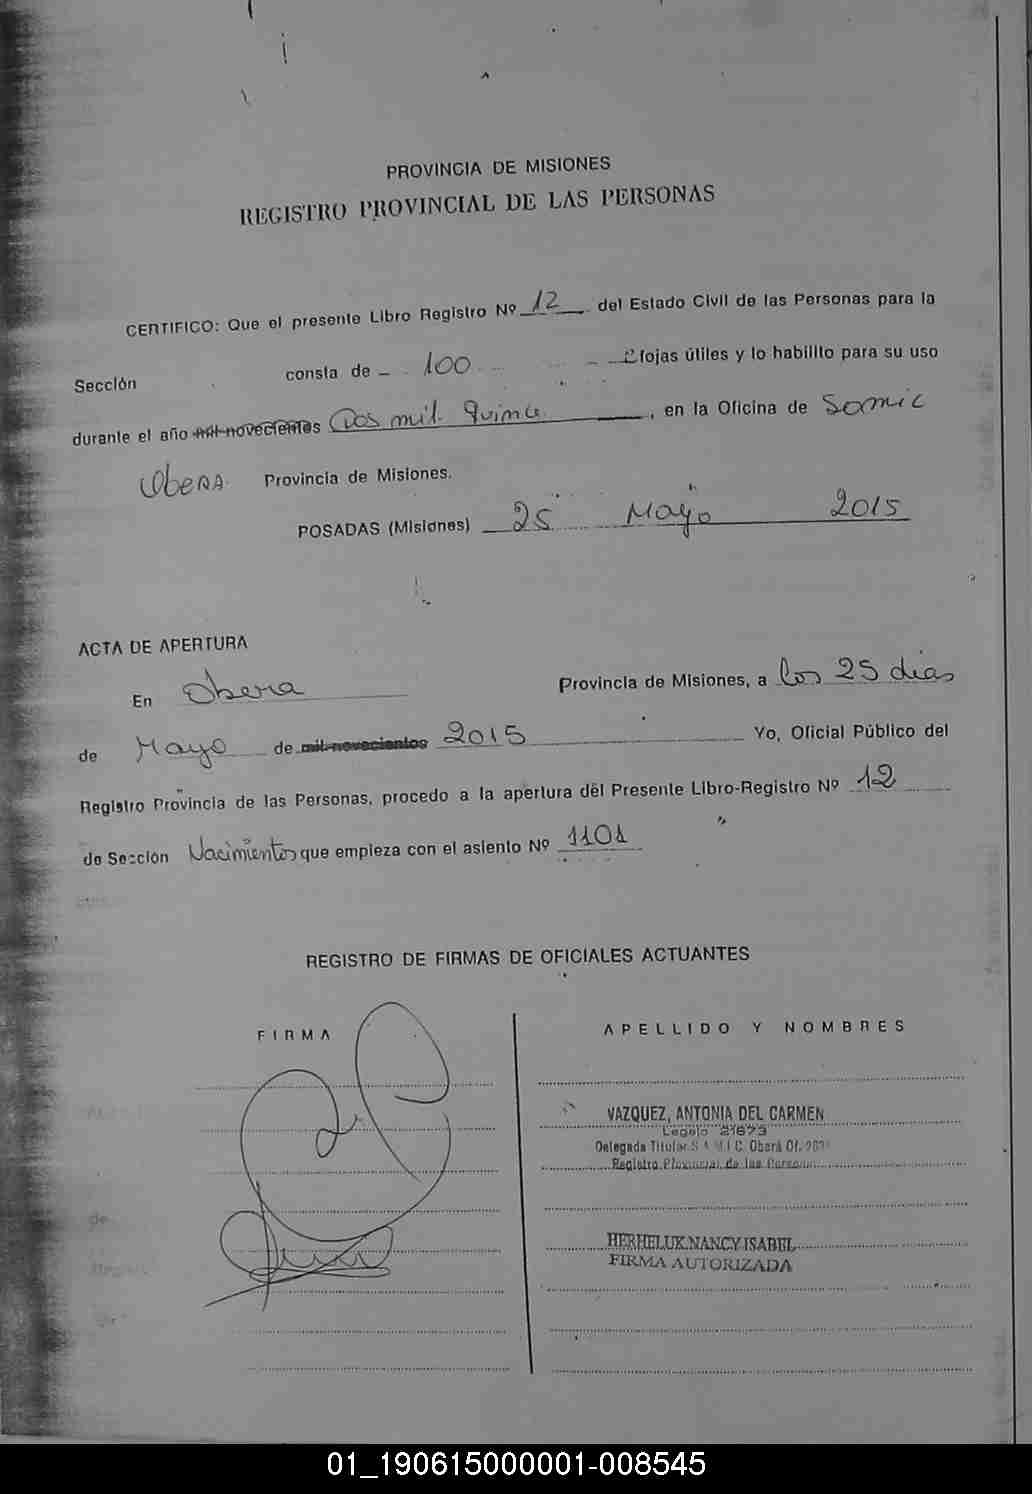 PROVINCIA DE MISIONES
REGISTRO PROVINCIAL DE LAS PERSONAS
CERTIFICO: Que el presente Libro Registro Nº 12 del Estado Civil de las Personas para la
Sección consta de 100 fojas útiles y lo habilito para su uso
durante el año mil novecientos Dos mil Quince, en la Oficina de Samic
Obera Provincia de Misiones.
POSADAS (Misiones) 25 Mayo 2015
ACTA DE APERTURA
En Obera Provincia de Misiones, a los 25 dias
de Mayo de mil novecientos 2015 Yo, Oficial Público del
Registro Provincia de las Personas, procedo a la apertura del Presente Libro-Registro Nº 12
de Sección Nacimientos que empieza con el asiento Nº 1101
REGISTRO DE FIRMAS DE OFICIALES ACTUANTES
FIRMA APELLIDO Y NOMBRES
VAZQUEZ, ANTONIA DEL CARMEN
Legajo 21673
Delegada Titular S.A.M.I.C. Oberá Of.
Registro Provincial de las Personas
HERHELUK NANCY ISABEL
FIRMA AUTORIZADA
01_190615000001-008545